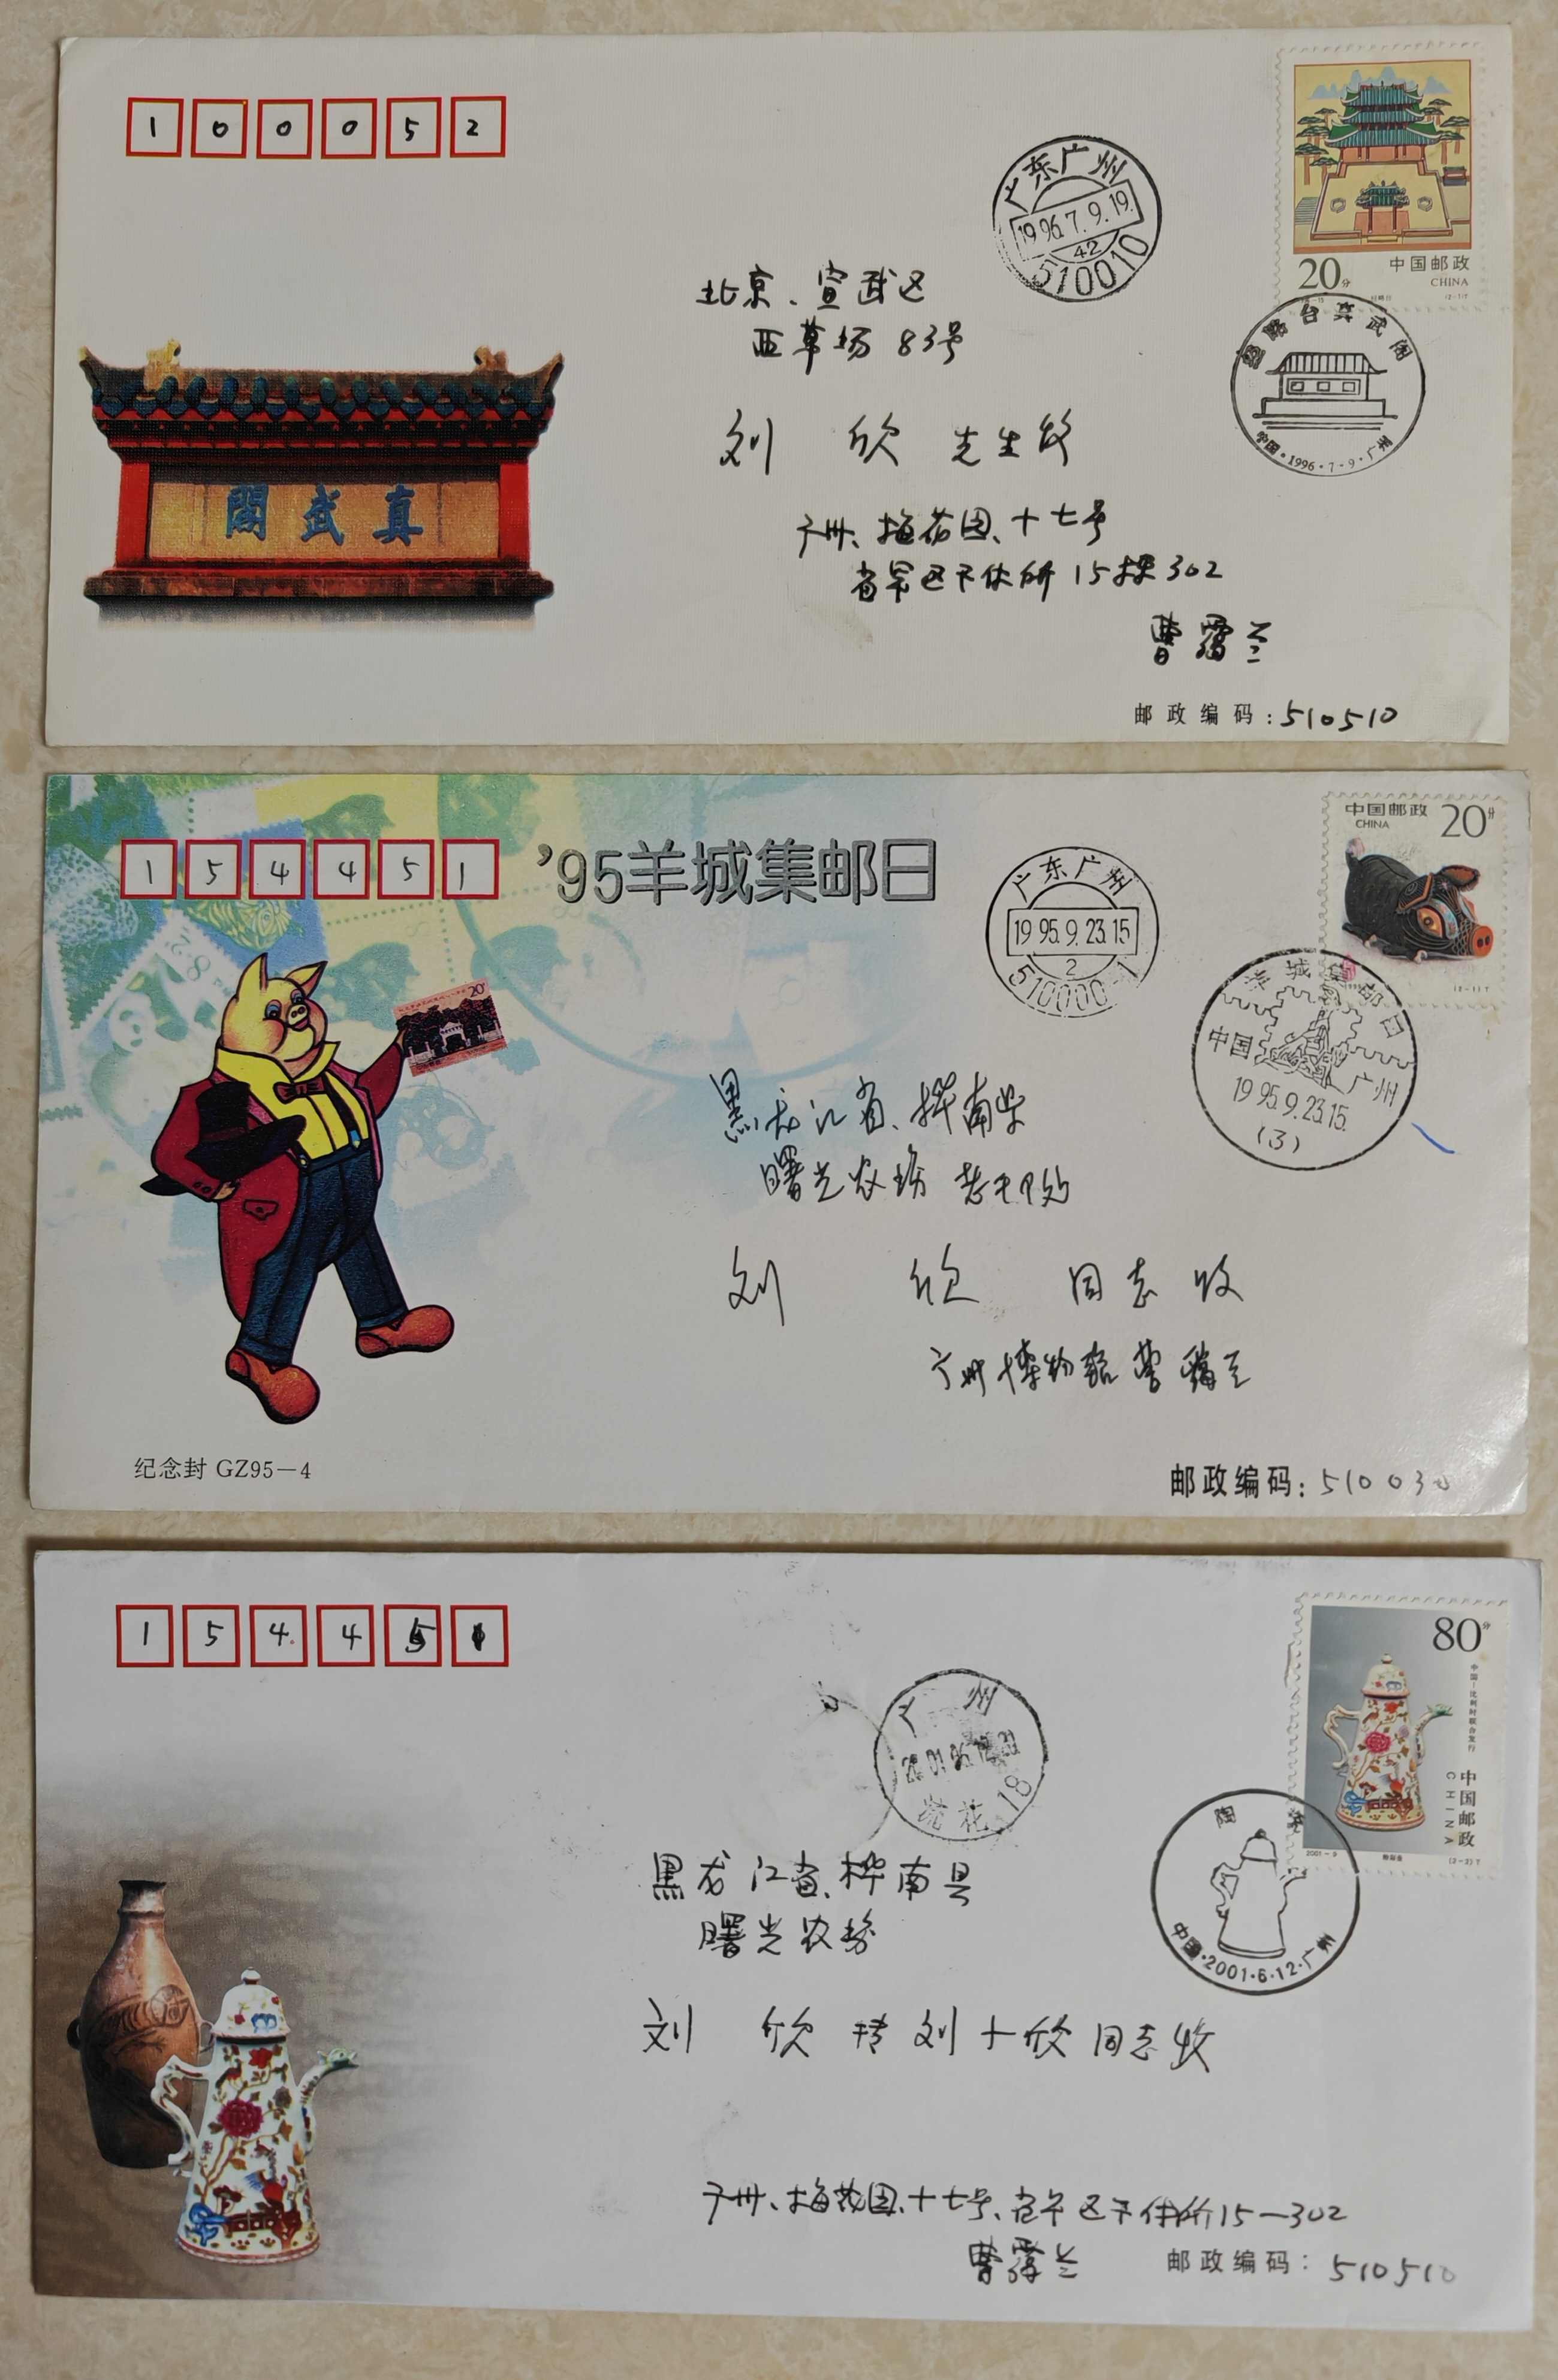 100052
广东广州
1996.7.9.19.
42
510010
20分
中国邮政
CHINA
经略台真武阁
中国·1996·7·9·广州
北京、宣武区
西草场83号
刘欣先生收
閣武真
广州、梅花园、十七号
省军区干休所15栋302
曹
邮政编码:510510
154451
'95羊城集邮日
广东广州
1995.9.23.15
2
510000-1
中国邮政
CHINA
20分
20
羊城集邮日
中国 广州
1995.9.23.15.
(3)
黑龙江省、桦南县
曙光农场
刘欣同志收
广州博物馆
纪念封 GZ95—4
邮政编码:510030
154451
广州
18
80分
中国—比利时联合发行
中国邮政
CHINA
2001-9
(2-2)T
陶瓷
中国·2001·6·12·广州
黑龙江省、桦南县
曙光农场
刘欣转刘十欣同志收
广州、梅花园、十七号、省军区干休所15—302
曹
邮政编码:510510